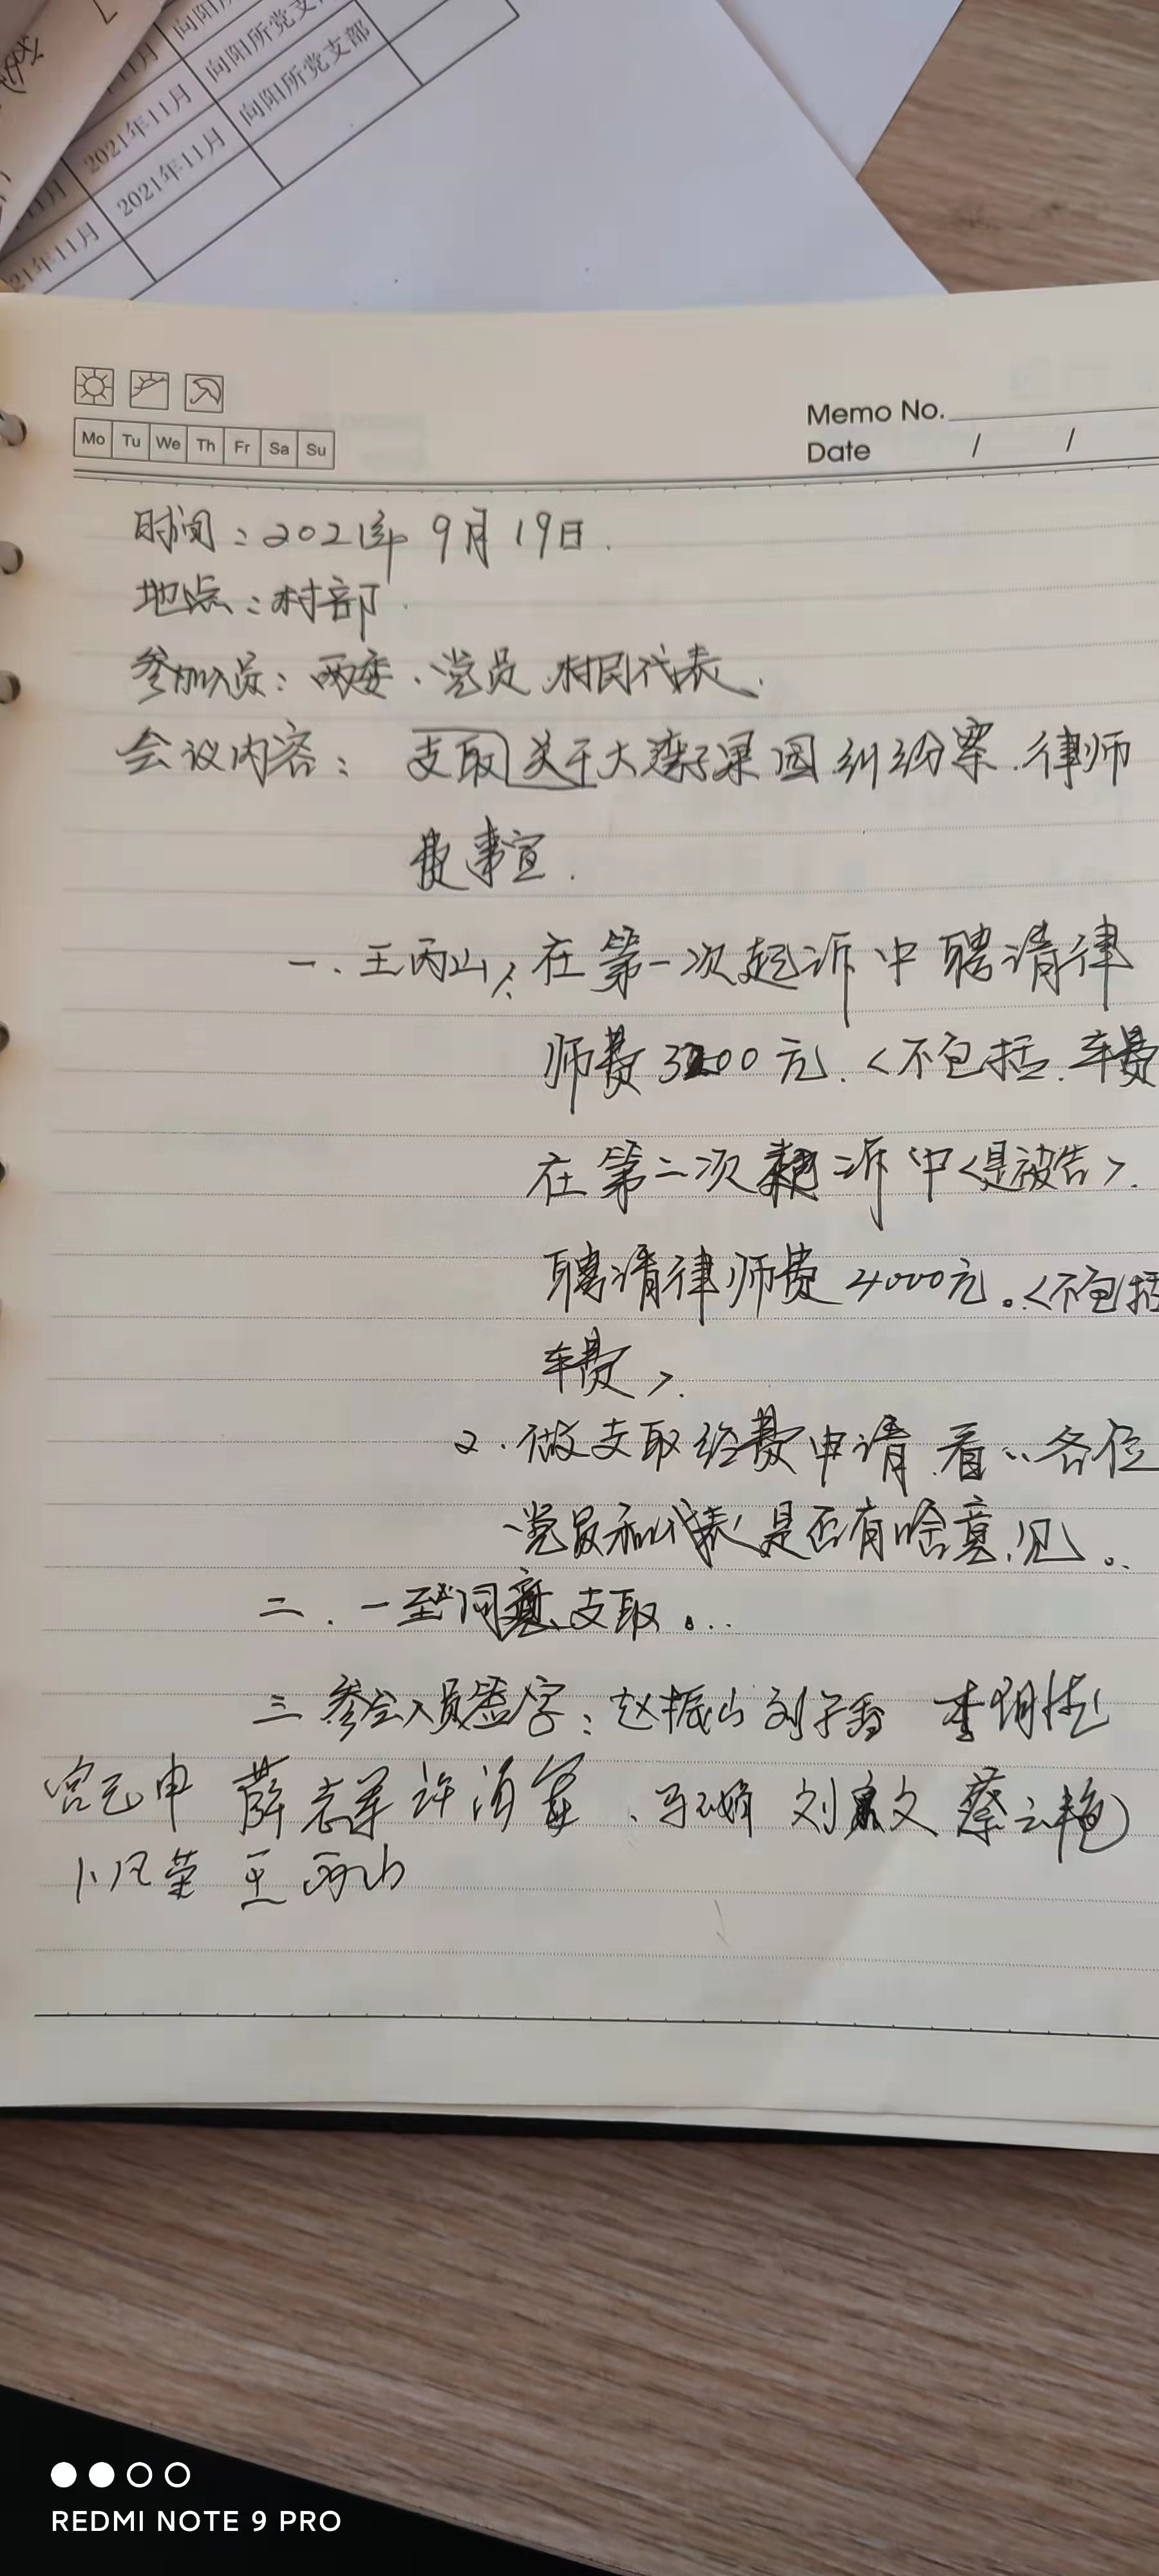 向阳所党支部
2021年11月 向阳所党支部
2021年11月 向阳所党支部
21年11月
Mo Tu We Th Fr Sa Su
Memo No.
Date / /
时间：2021年9月19日.
地点：村部.
参加人员：两委、党员、村民代表.
会议内容： 支取关于大 果园纠纷案.律师
费事宜.
一.王丙山: 在第一次起诉中聘请律
师费3200元.<不包括.车费
在第二次 诉中<是被告>.
聘请律师费4000元。<不包括
车费>.
2.做支取经费申请.看:各位
党员和代表是否有啥意见。
二.一至同意支取。..
三 参会人员签字：赵振山 刘子香 李明
宫元申 薛志军 许海军、马 刘 文 蔡云艳
卜凡荣 王丙山
REDMI NOTE 9 PRO